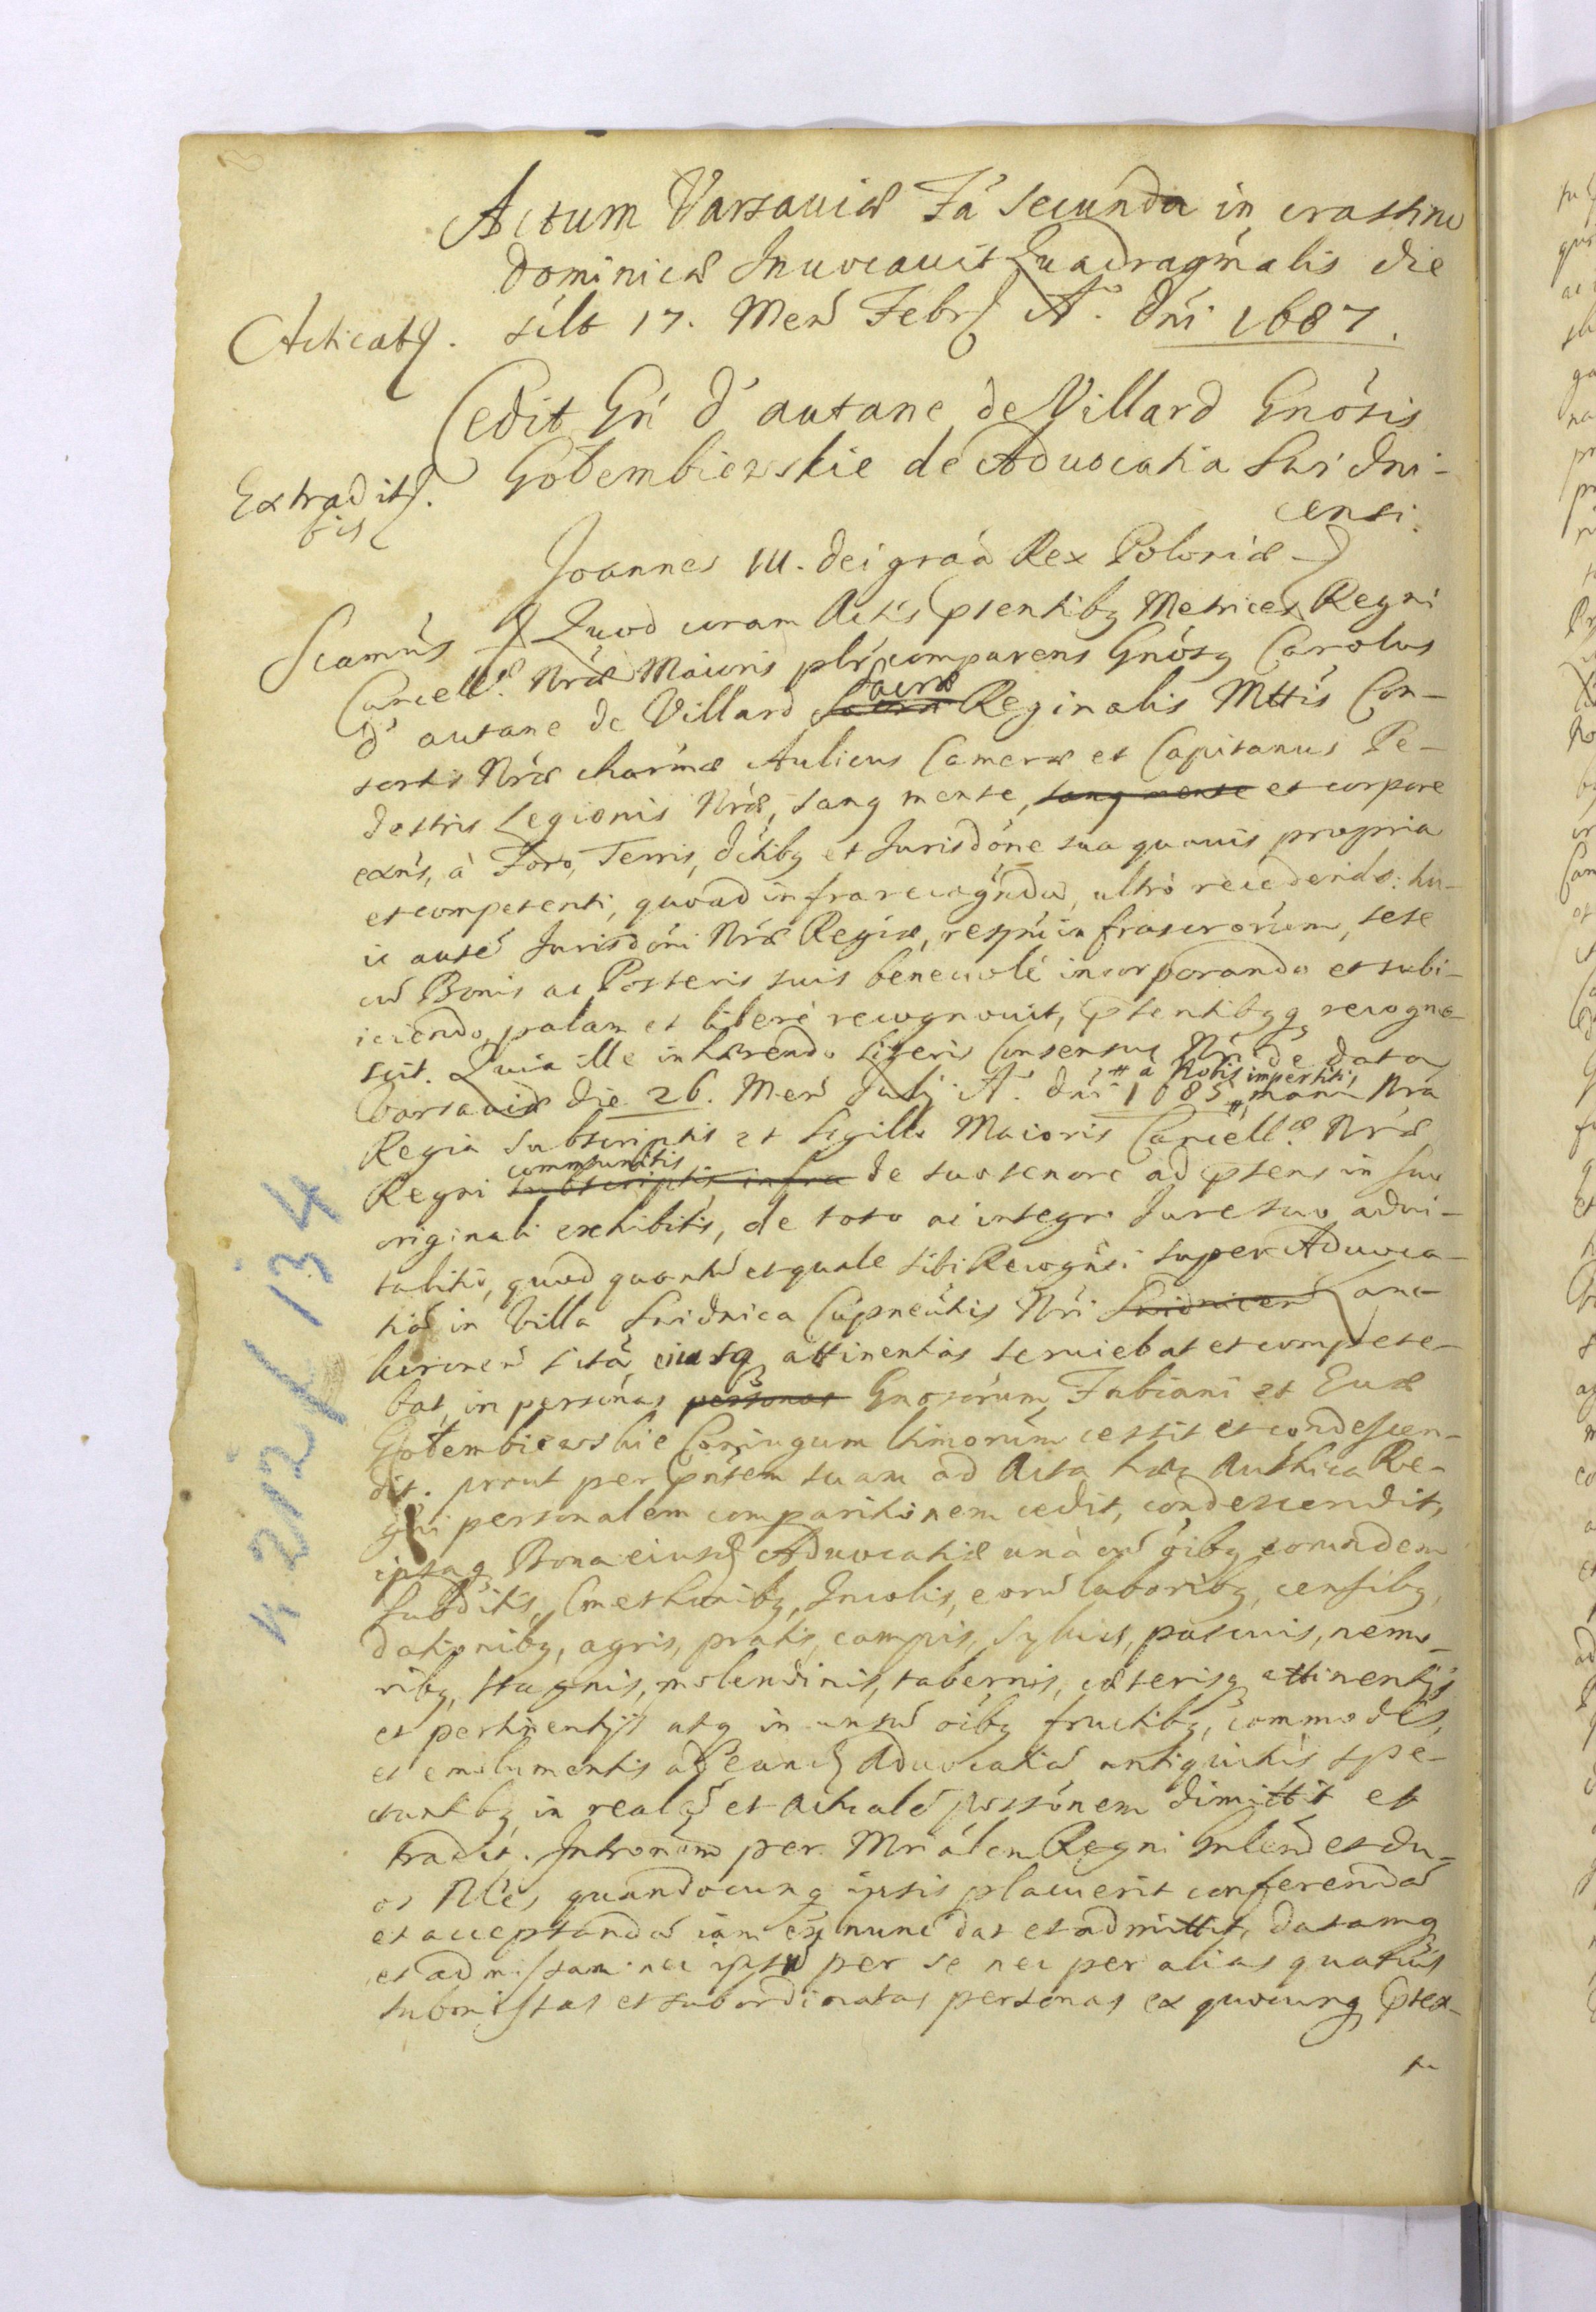 Actum Varsaviæ Fã secunda in crastino
Dominicæ Inuocauit Quadragmalis die
Acticatq. scilt 17. Men Febr A. Dni 1687.
Cedit Gñ d'autane de Villard Gnosis
Extradit. Gołembiewskie de Aduocatia Swidni-
bis
censi.
Joannes III. Dei graã Rex Poloniæ
Scamus Quod coram Actis pntentibq Metrices Regni
Cancellæ Nræ Maioris plr comparens Gnosq Carolus
Sacræ
d'autane de Villard Reginalis Mttis Con-
sortis Nræ charmæ Aulicus Cameræ et Capitanus Pe-
destris Legionis Nræ, sanq mente, sanq mente et corpore
exñs, à Foro, Terris, dctibq et Jurisdõne sua quauis propria
et competenti, quoad infra recogñda, ultrò recedendo: hu-
ic autẽ Jurisdõni Nræ Regiæ, respũ infrascrorum, sese
cũ Bonis ac Posteris suis beneuolè incorporando et subi-
iciendo, palam et liberè recognouit, pntentibqq recogno-
scit. Quia ille inhærendo literis Consensus Nri de data
# a Nobis impertitis
Varsaviæ die 26. Men Julij A. Dni 1685 # manu Nrã
Regia subscriptis et sigillo Maioris Cancellæ Nræ
communitis
Regni subscriptis infra de suo tenore ad pntens in suo
originali exhibitis, de toto ac integro Jure suo adui-
talitio, quod quantũ et quale sibi Recogñti super Aduoca-
tiã in Villa Swidnica Cupneutis Nri Swidnicen Lanc-
kronen sitã, eiusqq attinentias seruiebat et compete-
bat, in personas personas Gnosorum Fabiani et Euæ
Gołembiewskie Coniugum ltimorum cessit et condescen-
dit. prout per pntem suam ad Acta hæc Authica Re-
gni personalem comparitionem cedit, condescendit,
ipsaq Bona eiusd Aduocatiæ unà cũ oibq eorundem
subditis, Cmethonibq, Incolis, eorũ laboribq, censibq,
dationibq, agris, pratis, campis, syluis, pascuis, nemo-
ribq, stagnis, molendinis, tabernis, cæterisq attinentijs
et pertinentijs atq in untũ oibq fructibq, commodis,
et emolumentis ad eand Aduocatiã antiquitùs spe-
ctantibq in realẽ et actualẽ possõnem dimittit et
tradit. Intronem per Mriãlem Regni Gnlem et du-
os Nles quandocunq ipsis placuerit conferendã
et acceptandã iam ex nunc dat et admittit, datamq
et admissam nec ipsũ per se nec per alias quasuis
submissas et subordinatas personas ex quocunq prtex-
tu